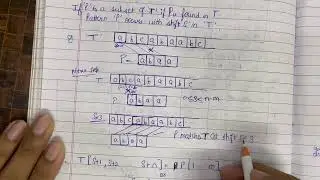 If P is a subset of T if P is found in T.
Pattern 'P' occurs with shift 'S' in T.
T a b c a b a a b c
P= a b a a
T a b c a b a a b c
P a b a a 0≤s≤ n-m
S=3
a b a a
P matches T at shift 3
T [S+1, S+2 S+m] = P[1 m]